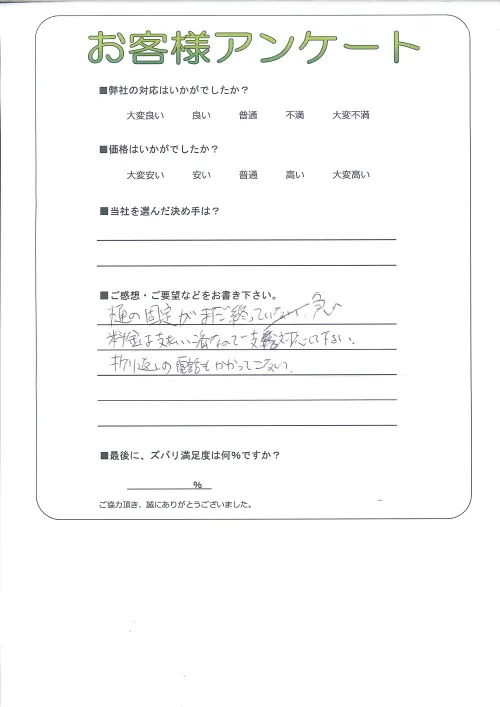 お客様アンケート
■弊社の対応はいかがでしたか？
大変良い 良い 普通 不満 大変不満
■価格はいかがでしたか？
大変安い 安い 普通 高い 大変高い
■当社を選んだ決め手は？
■ご感想・ご要望などをお書き下さい。
樋の固定がまだ終っていない、
料金は支払い済なので 対応して下さい、
折り返しの電話もかかってこない、
■最後に、ズバリ満足度は何%ですか？
%
ご協力頂き、誠にありがとうございました。